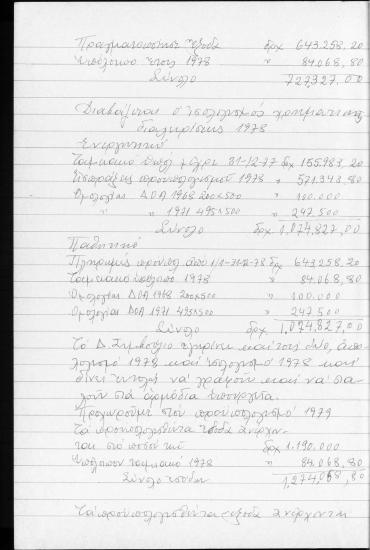 Πραγματοποιηθέντα έξοδα δρχ 643.258.20
Υπόλοιπο έτους 1978 " 84.068,80
Σύνολο 727,327.00
Διαβάζεται ο ισολογισμός χρηματικής
διαχειρίσεως 1978
Ενεργητικό
Ταμειακό υπόλ μέχρι 31-12-77 δρχ 155.983,20
Εισπράξεις προϋπολογισμού 1978 " 571.343,80
Ομολογίες ΔΟΛ 1968 200x500 " 100.000
" " 1971 495x500 " 247.500
Σύνολο δρχ 1,074,827,00
Παθητικό
Πληρωμές προϋπολ από 1/1-31-12-78 δρχ 643.258.20
Ταμειακό υπόλοιπο 1978 " 84.068,80
Ομολογίες ΔΟΛ 1968 200x500 " 100.000
Ομολογίες ΔΟΛ 1971 495x500 " 247.500
Σύνολο δρχ 1,074,827,00
Το Δ. Συμβούλιο εγκρίνει και τους δύο, απο-
λογισμό 1978 και ισολογισμό 1978 και
δίνει εντολή να γραφούν και να στα-
λούν στα αρμόδια υπουργεία.
Προχωρούμε στον προϋπολογισμό 1979
Τα προϋπολογισθέντα έσοδα ανέρχον-
ται στο ποσόν των δρχ 1.190.000
Υπόλοιπον ταμειακό 1978 " 84.068,80
Σύνολο εσόδων 1,274,068,80
Τα προϋπολογισθέντα έξοδα ανέρχονται